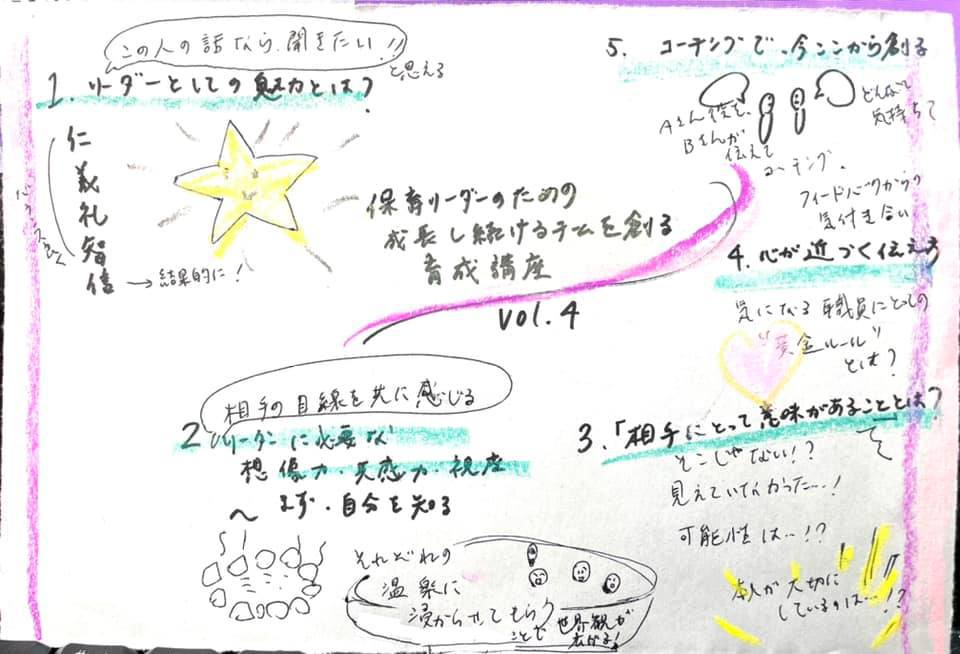 この人の話なら、聞きたい!!
と思える
1. リーダーとしての魅力とは?
仁
義
礼
智
信 → 結果的に!
バランスよく
保育リーダーのための
成長し続けるチームを創る
育成講座
vol.4
相手の目線を共に感じる
2 リーダーに必要な
想像力・共感力・視座
まず・自分を知る
それぞれの
温泉に
浸からせてもらう
ことで 世界観が
広がる!
3.「相手にとって意味があることとは?
そこじゃない!?
見えていなかった…!
可能性は…!?
本人が大切に
しているのは…!?
4. 心が近づく伝え方
気になる職員にとっての
"黄金ルール"
とは?
5. コーチングで、今ここから創る
Aさん役を、
Bさんが
伝えて
どんな
気持ち?
コーチング、
フィードバックからの
気付き合い